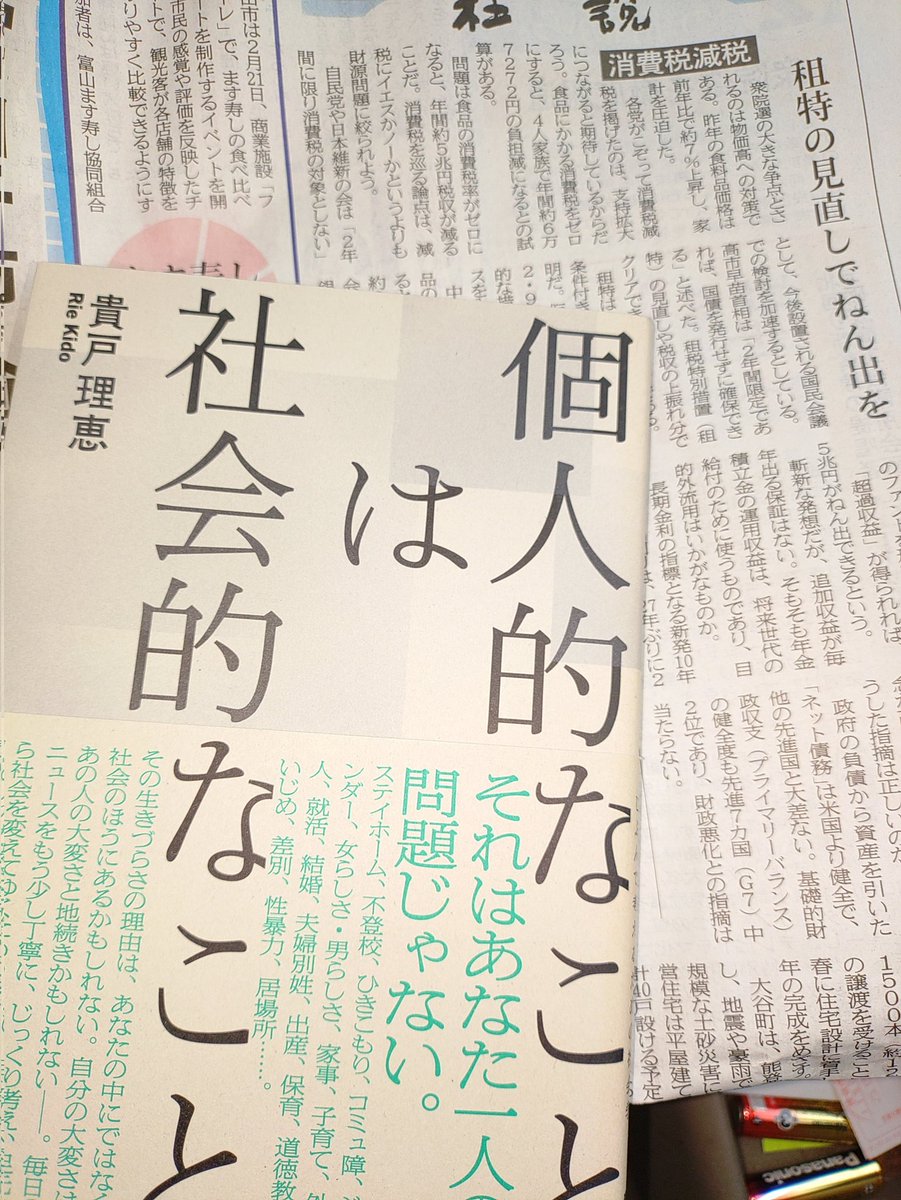 社説
消費税減税
租特の見直しでねん出を
衆院選の大きな争点とさ
れるのは物価高への対策で
ある。昨年の食料品価格は
前年比で約7%上昇し、家
計を圧迫した。
各党がこぞって消費税減
税を掲げたのは、支持拡大
につながると期待しているからだ
ろう。食品にかかる消費税をゼロ
にすると、4人家族で年間約6万
7272円の負担減になるとの試
算がある。
問題は食品の消費税率がゼロに
なると、年間約5兆円税収が減る
ことだ。消費税を巡る論点は、減
税にイエスかノーかというよりも
財源問題に絞られよう。
自民党や日本維新の会は「2年
間に限り消費税の対象としない」
として、今後設置される国民会議
での検討を加速するとしている。
高市早苗首相は「2年間限定であ
れば、国債を発行せずに確保でき
る」と述べた。租税特別措置（租
特）の見直しや税収の上振れ分で
クリアでき
租特は
条件付き
明だ。
2・9
的な
「超過収益」が得られれば
5兆円がねん出できるという。
斬新な発想だが、追加収益が毎
年出る保証はない。そもそも年金
積立金の運用収益は、将来世代の
給付のために使うものであり、目
的外流用はいかがなものか。
長期金利の指標となる新発10年
27年ぶりに2
うした指摘は正しいのか
政府の負債から資産を引いた
「ネット債務」は米国より健全で、
他の先進国と大差ない。基礎的財
政収支（プライマリーバランス）
の健全度も先進7カ国（G7）中
2位であり、財政悪化との指摘は
当たらない。
1500本
の譲渡を受けること
春に住宅設計に着
年の完成をめざす。
大谷町は、能登
し、地震や豪雨で
規模な土砂災害に
営住宅は平屋建て
計40戸設ける予定
山市は2月21日、商業施設「フ
ーレ」で、ます寿しの食べ比べ
ートを制作するイベントを開
市民の感覚や評価を反映したチ
トで、観光客が各店舗の特徴を
りやすく比較できるようにす
加者は、富山ます寿し協同組合
個人的なこと
は
社会的なこと
貴戸 理恵
Rie Kido
それはあなた一人の
問題じゃない。
ステイホーム、不登校、ひきこもり、コミュ障、ジェ
ンダー、女らしさ・男らしさ、家事、子育て、外
人、就活、結婚、夫婦別姓、出産、保育、道徳教
いじめ、差別、性暴力、居場所……。
その生きづらさの理由は、あなたの中にではなく
社会のほうにあるかもしれない。自分の大変さは
あの人の大変さと地続きかもしれない――。毎日
ニュースをもう少し丁寧に、じっくり考え、
ら社会を変えてゆく
Panasonic